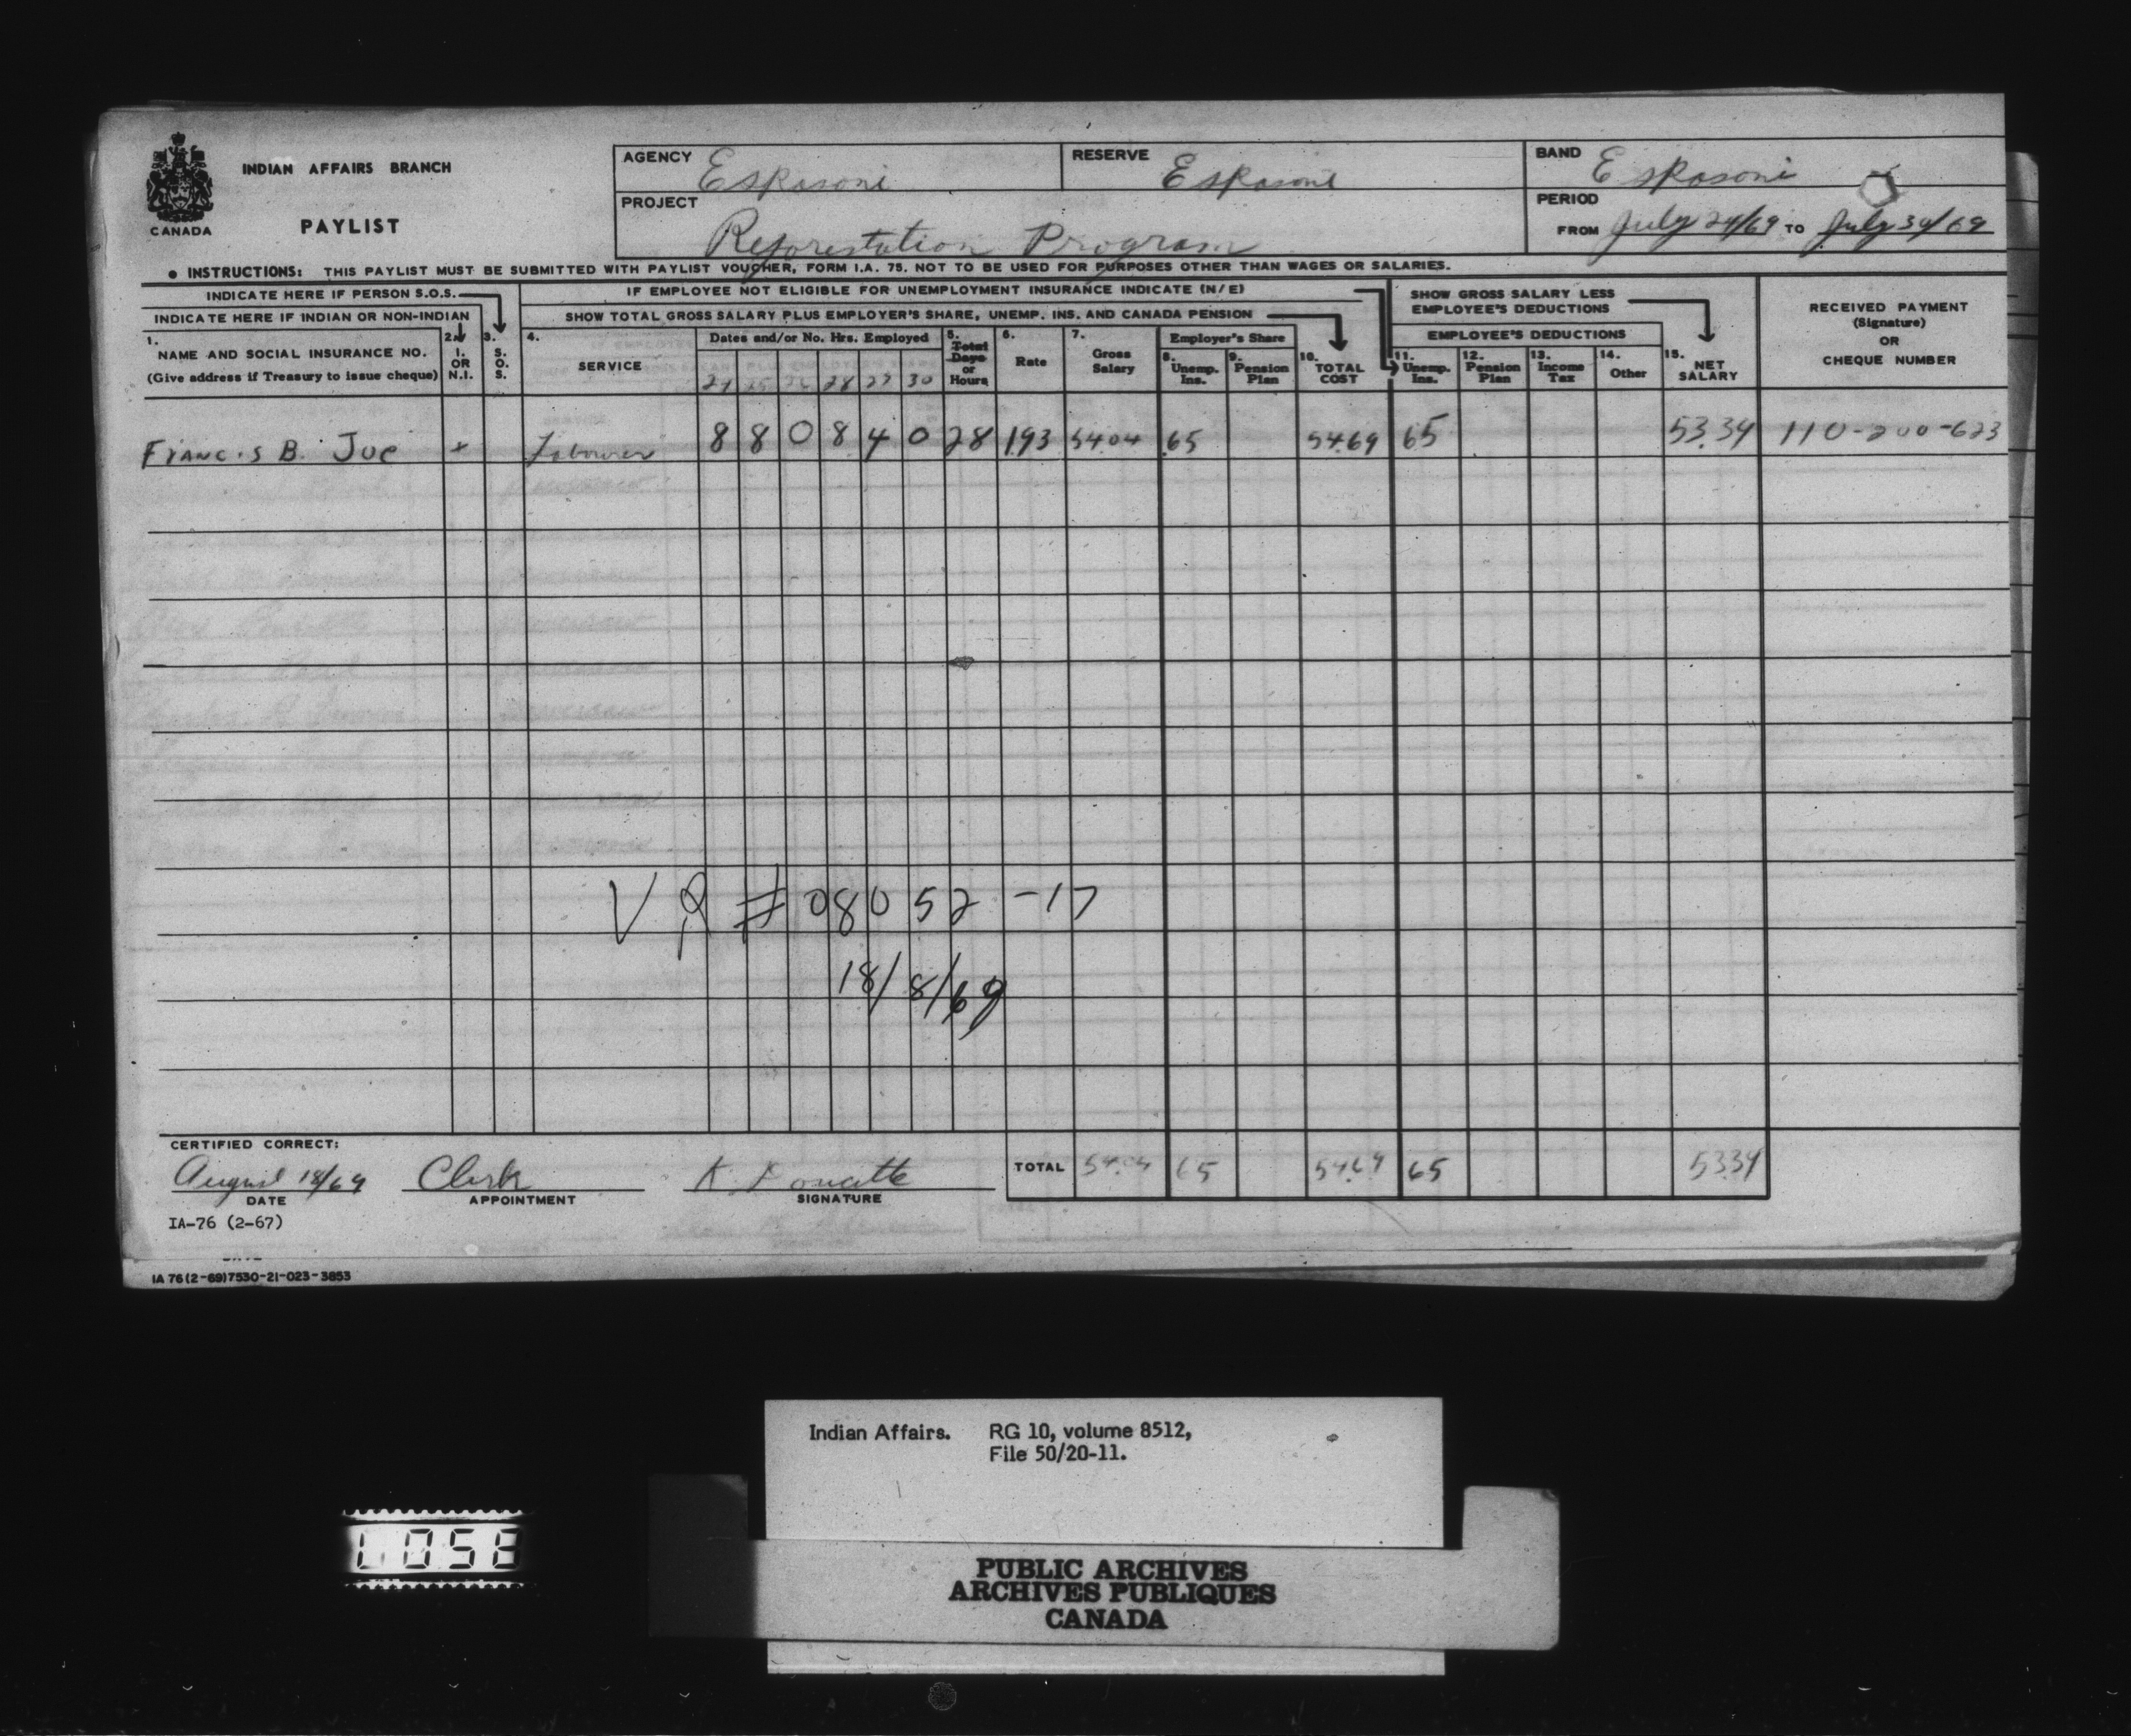 INDIAN AFFAIRS BRANCH
CANADA
PAYLIST
AGENCY Eskasoni
RESERVE Eskasoni
BAND Eskasoni
PROJECT Reforestation Program
PERIOD
FROM July 24/69 TO July 30/69
● INSTRUCTIONS: THIS PAYLIST MUST BE SUBMITTED WITH PAYLIST VOUCHER, FORM I.A. 75. NOT TO BE USED FOR PURPOSES OTHER THAN WAGES OR SALARIES.
INDICATE HERE IF PERSON S.O.S.
INDICATE HERE IF INDIAN OR NON-INDIAN
IF EMPLOYEE NOT ELIGIBLE FOR UNEMPLOYMENT INSURANCE INDICATE (N/E)
SHOW TOTAL GROSS SALARY PLUS EMPLOYER'S SHARE, UNEMP. INS. AND CANADA PENSION
SHOW GROSS SALARY LESS
EMPLOYEE'S DEDUCTIONS
1.
NAME AND SOCIAL INSURANCE NO.
(Give address if Treasury to issue cheque)
2.
I. OR N.I.
3.
S. O. S.
4.
SERVICE
Dates and/or No. Hrs. Employed
28 29 30
5.
Total Days or Hours
6.
Rate
7.
Gross Salary
Employer's Share
8.
Unemp. Ins.
9.
Pension Plan
10.
TOTAL COST
EMPLOYEE'S DEDUCTIONS
11.
Unemp. Ins.
12.
Pension Plan
13.
Income Tax
14.
Other
15.
NET SALARY
RECEIVED PAYMENT
(Signature)
OR
CHEQUE NUMBER
Francis B. Joe x Labourer 8 8 0 8 4 0 28 1.93 54.04 .65 54.69 65 53.34 110-200-623
# 08052-17
18/8/69
CERTIFIED CORRECT:
August 18/69 Clerk
DATE APPOINTMENT SIGNATURE
TOTAL 54.04 65 54.69 65 53.34
IA-76 (2-67)
IA 76 (2-69) 7530-21-023-3853
Indian Affairs. RG 10, volume 8512,
File 50/20-11.
PUBLIC ARCHIVES
ARCHIVES PUBLIQUES
CANADA